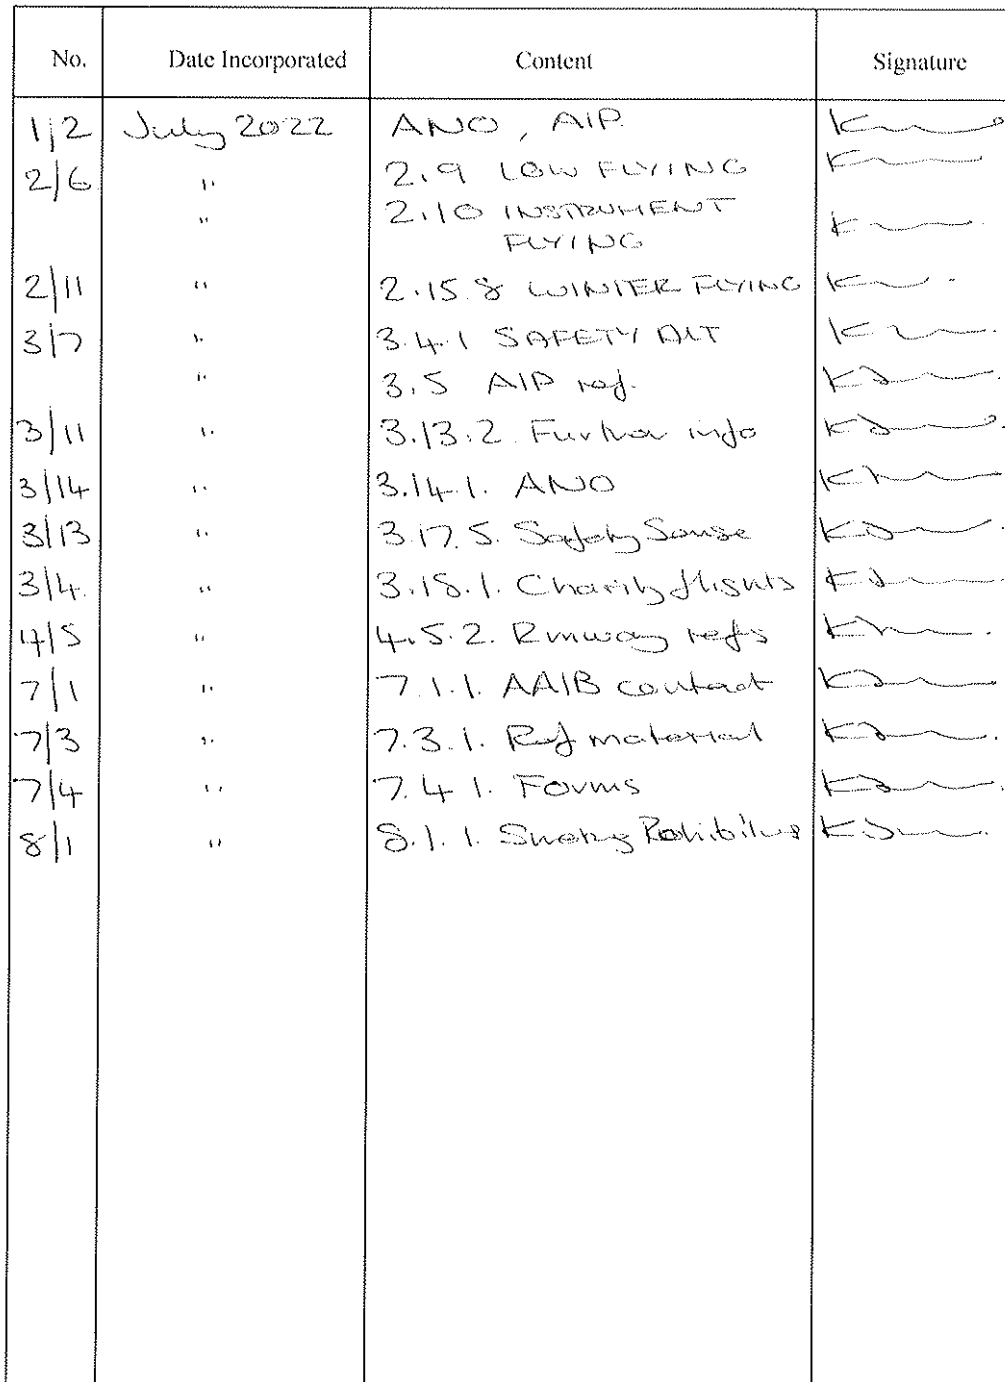 No. Date Incorporated Content Signature
1,2 July 2022 ANO, AIP.
2/6 " 2.9 LOW FLYING
" 2.10 INSTRUMENT
FLYING
2/11 " 2.15.8 WINTER FLYING
3/7 " 3.4.1 SAFETY ALT
" 3.5 AIP ref.
3/11 " 3.13.2. Further info
3/14 " 3.14.1. ANO
3/13 " 3.17.5. Safety Sense
3/4. " 3.18.1. Charity flights
4/5 " 4.5.2. Runway refs
7/1 " 7.1.1. AAIB contact
7/3 " 7.3.1. Ref material
7/4 " 7.4.1. Forms
8/1 " 8.1.1.